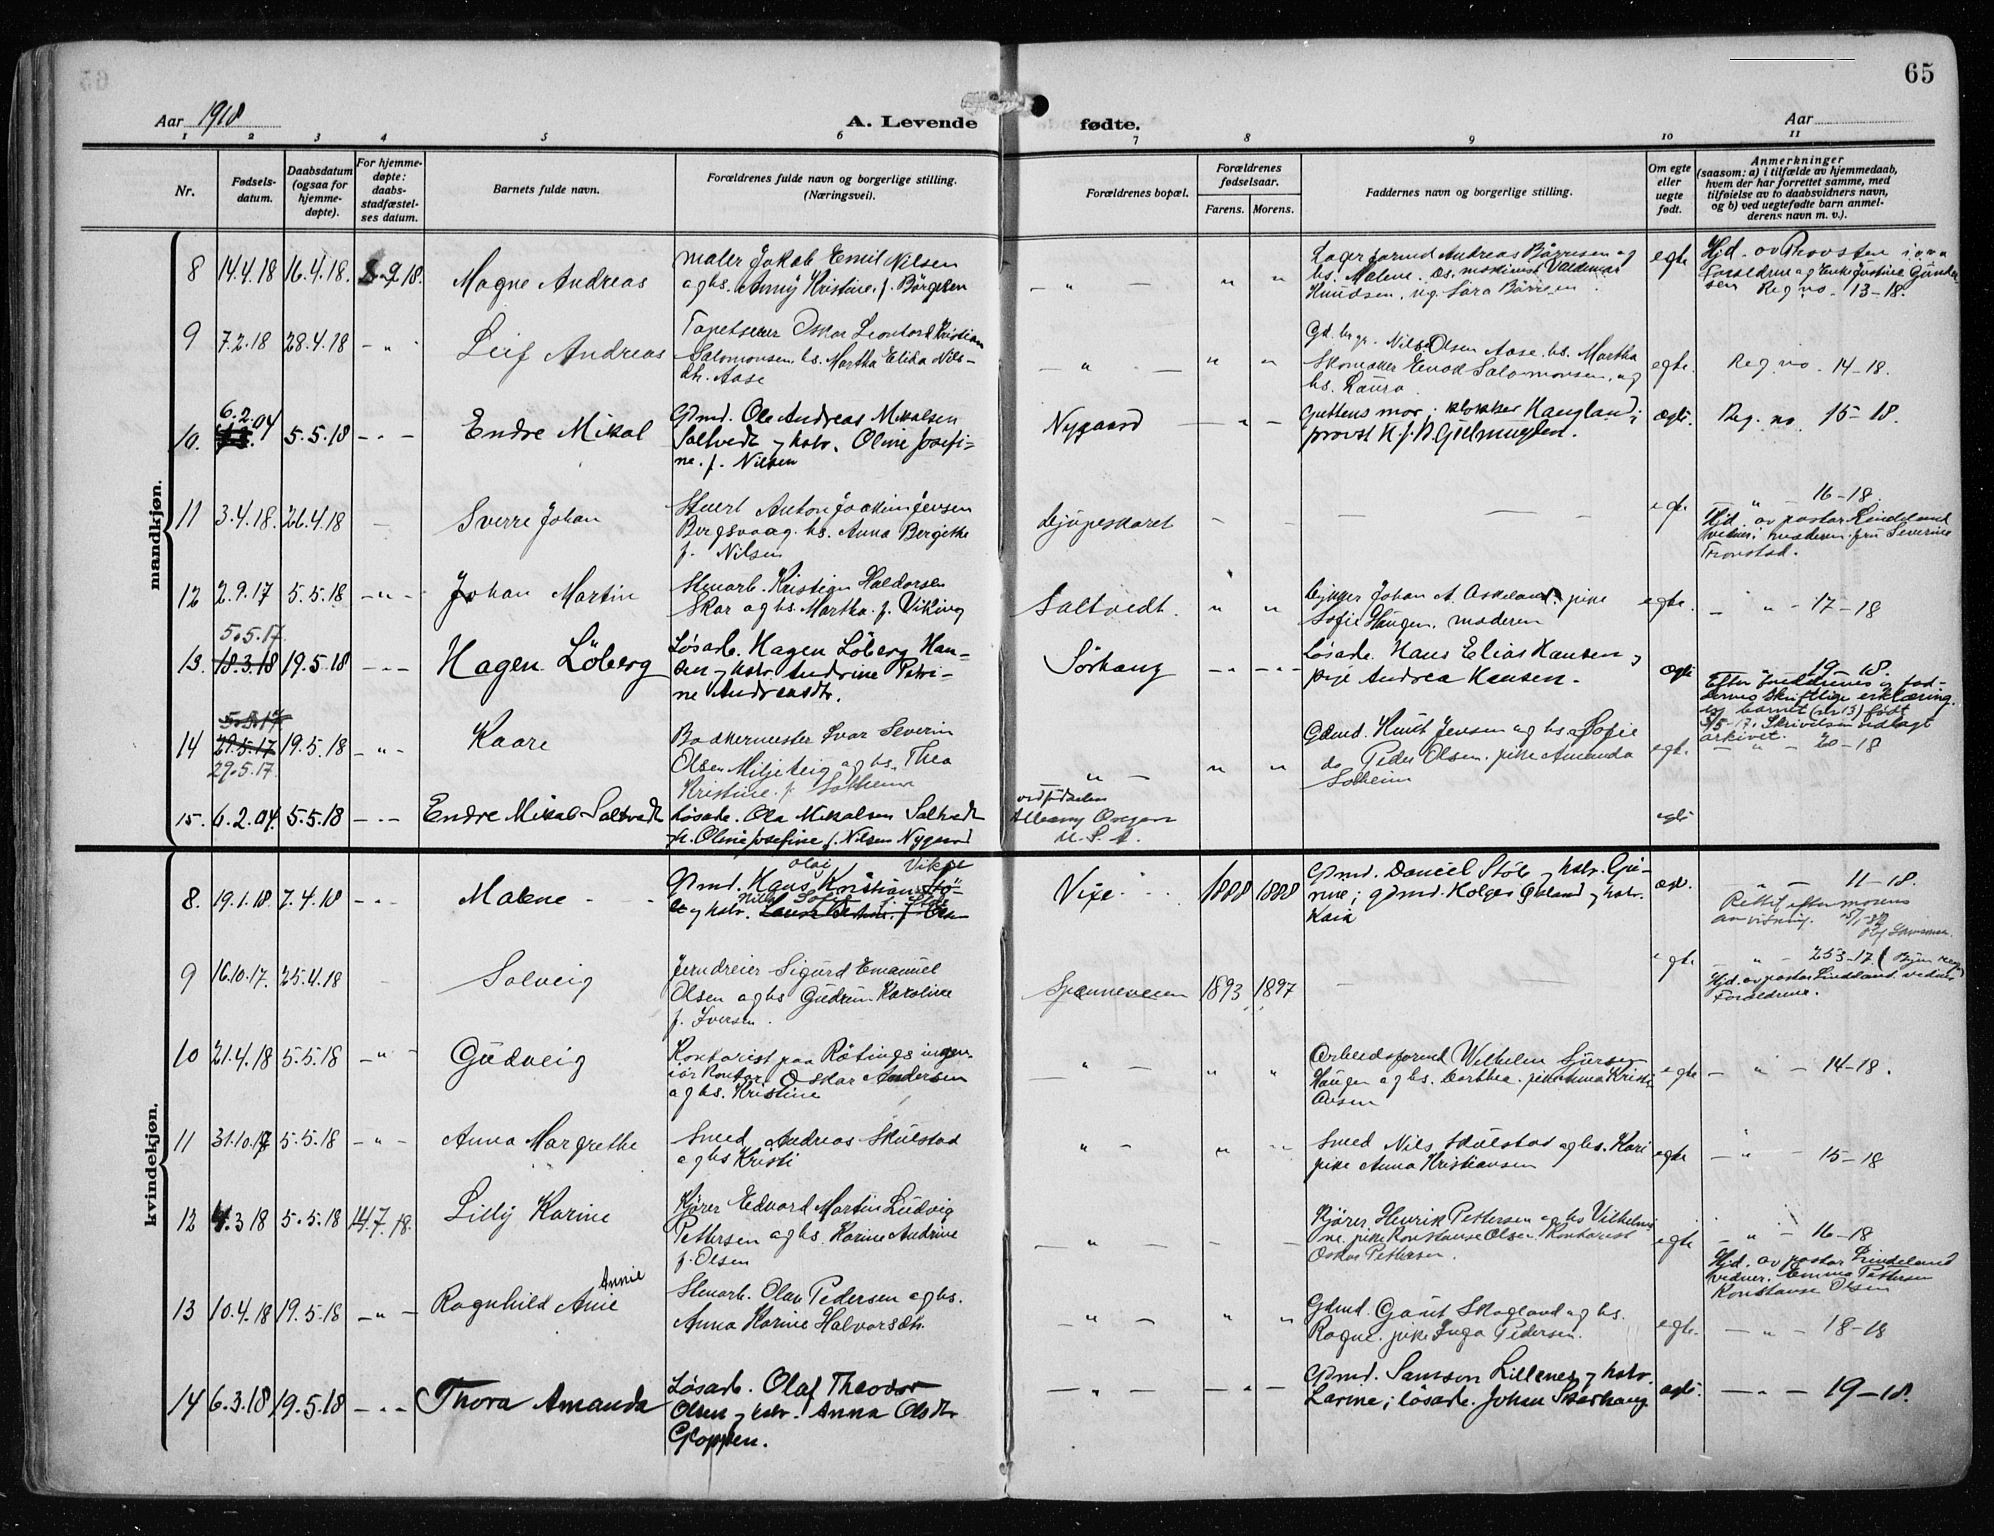 65
Aar 1918
A. Levende fødte.
Aar
1 2 3 4 5 6 7 8 9 10 11
Nr.
Fødsels-
datum.
Daabsdatum
(ogsaa for
hjemme-
døpte).
For hjemme-
døpte:
daabs-
stadfæstel-
ses datum.
Barnets fulde navn.
Forældrenes fulde navn og borgerlige stilling.
(Næringsvei).
Forældrenes bopæl.
Forældrenes
fødselsaar.
Farens. Morens.
Faddernes navn og borgerlige stilling.
Om egte
eller
uegte
født.
Anmerkninger
(saasom: a) i tilfælde av hjemmedaab,
hvem der har forrettet samme, med
tilføielse av to daabsvidners navn,
og b) ved uegtefødte barn anmel-
derens navn m. v.).
mandkjøn.
8 14.4.18 16.4.18. 8-9.18. Magne Andreas
maler Jakob Emil Nilsen
og hs. Anny Kristine f. Børgesen
- " - " "
Andreas Børresen og
hs. Malene. maskinist Valdemar
Knudsen, Sara Børresen.
egte
Hjd. av Provsten
Forældrene og Enke Justine Gunder-
sen Reg no. 13-18.
9 7.2.18 28.4.18 - " Leif Andreas
Tapetserer Oskar Leonhard Kristian
Salomonsen hs. Martha Elida Nils-
dtr. Aase
- " - " "
Nils Olsen Aase. hs. Martha
Skomaker Salomonsen, og
hs. Laura
egte.
Reg. no. 14-18.
10. 6.2.04 5.5.18 - " - Endre Mikal
Gpmd. Ole Andreas Mikalsen
Saltvedt og kstr. Oline Josefi-
ne. f. Nilsen
Nygaard - " -
Guttens mor; klokker Haugland;
provst
ægte.
Reg. no. 15-18.
11 3.4.18. 26.4.18 - Sverre Johan
Stuert Anton Joakim Jensen
Bergsvaag. hs. Anna Bergithe
f. Nilsen
Djupeskaret - -
egte
" - 16-18.
Hjd. av pastor Lindeland
vidner: moderen. fru Severine
Tronstad.
12 2.9.17 5.5.18 - " - Johan Martin
Stenarb. Kristian Haldorsen
Skar og hs. Martha f. Viking
Saltvedt. " "
Johan A. Askeland. pike
Sofie Haugen. moderen
egte.
- " - 17-18
13. 5.5.17 18.3.18 19.5.18 - " - Hagen Löberg
Løsarb. Hagen Löberg Han-
sen og kstr. Andrine Petri-
ne Andreasdtr.
Sørhaug - " - " -
Løsarb. Hans Elias Hansen og
pige Andrea Hansen.
ægte
19-18.
Efter forældrenes og fad-
dernes skriftlige erklæring
er barnet (nr 13) født
5/5 17. Skrivelsen vedlagt
arkivet.
14 5.5.17 29.5.17 29.5.17. 19.5.18 - " - Kaare
Bødkermester Ivar Severin
Olsen Miljeteig og hs. Thea
Kristine. f. Solheim
" - " "
Gdmd. Knut Jensen og hs. Sofie
do Peder Olsen. pike Amanda
Solheim
egte.
- " - 20-18
15. 6.2.04. 5.5.18 - " - Endre Mikal Saltvedt
Løsarb. Ola Mikalsen Saltvedt
og Oline Josefine f. Nilsen Nygaard
ved fødselen
Albany Oregon
U.S.A.
egte
kvindekjøn.
8. 19.1.18. 7.4.18 - " - Malene - -
Gpmd. Hans Kristian Olai Vikse
og kstr. Nilla Sofie
Vixe. - 1888 1888
Gpmd. Daniel Stöle og kstr. Gu-
rine; gpmd. Holger Økland og kstr.
Kaia
ægte.
" - 11-18.
Rettet efter morens
anvisning.
9 16.10.17. 25.4.18 - Solveig
Jerndreier Sigurd Emanuel
Olsen og hs Gudrun Karoline
f. Iversen.
Spanneveien 1893 1897
egte
- " - 253-17.
Hjd. av pastor Lindeland. vidner
Forældrene.
10 21.4.18 5.5.18 - " - Gudveig
Kontorist paa Rötings ingen-
iör kontor. Oskar Andersen
og hs. Kristine
- " - " "
Arbeidsformd Wilhelm
Haugen og hs. Dorthea. pike Anna Kristi
Olsen
egte
- " - 14-18.
11 31.10.17 5.5.18 - " - Anna Margrethe
Smed Andreas Skulstad
og hs Kristi
" - " "
Smed Nils Skulstad og hs. Kari
pike Anna Kristiansen
egte
- " - 15-18
12 4.3 18 5.5.18 14.7.18. Lilly Karine
Kjører Edvard Martin Ludvig
Pettersen og hs. Karine Andrine
f. Olsen
- " -
Kjører. Henrik Pettersen og hs Vilhelmi
ne. pike Konstanse Olsen. Kontorist
Oskar Pettersen.
egte
- " - 16-18
Hjd. av pastor Lindeland
vidner. Emma Pettersen
Konstanse Olsen
13 10.4.18 19.5.18 - " - Ragnhild Anie Annie
Stenarb. Olav Pedersen og hs.
Anna Karine Halvorsdtr.
- " - " "
Gdmd. Gaut Skogland og hs.
Ragne. pike Inga Pedersen.
egte.
- " - 18-18
14 6.3.18 19.5.18 - " - Thora Amanda
Løsarb. Olaf Theodor
Olsen og kstr. Anna Olsdtr
Gloppen.
- " - - " -
Gpmd. Samson Lillenes og kstr.
Larine; løsarb. Johan Skarhaug
ægte.
- " - 19-18.